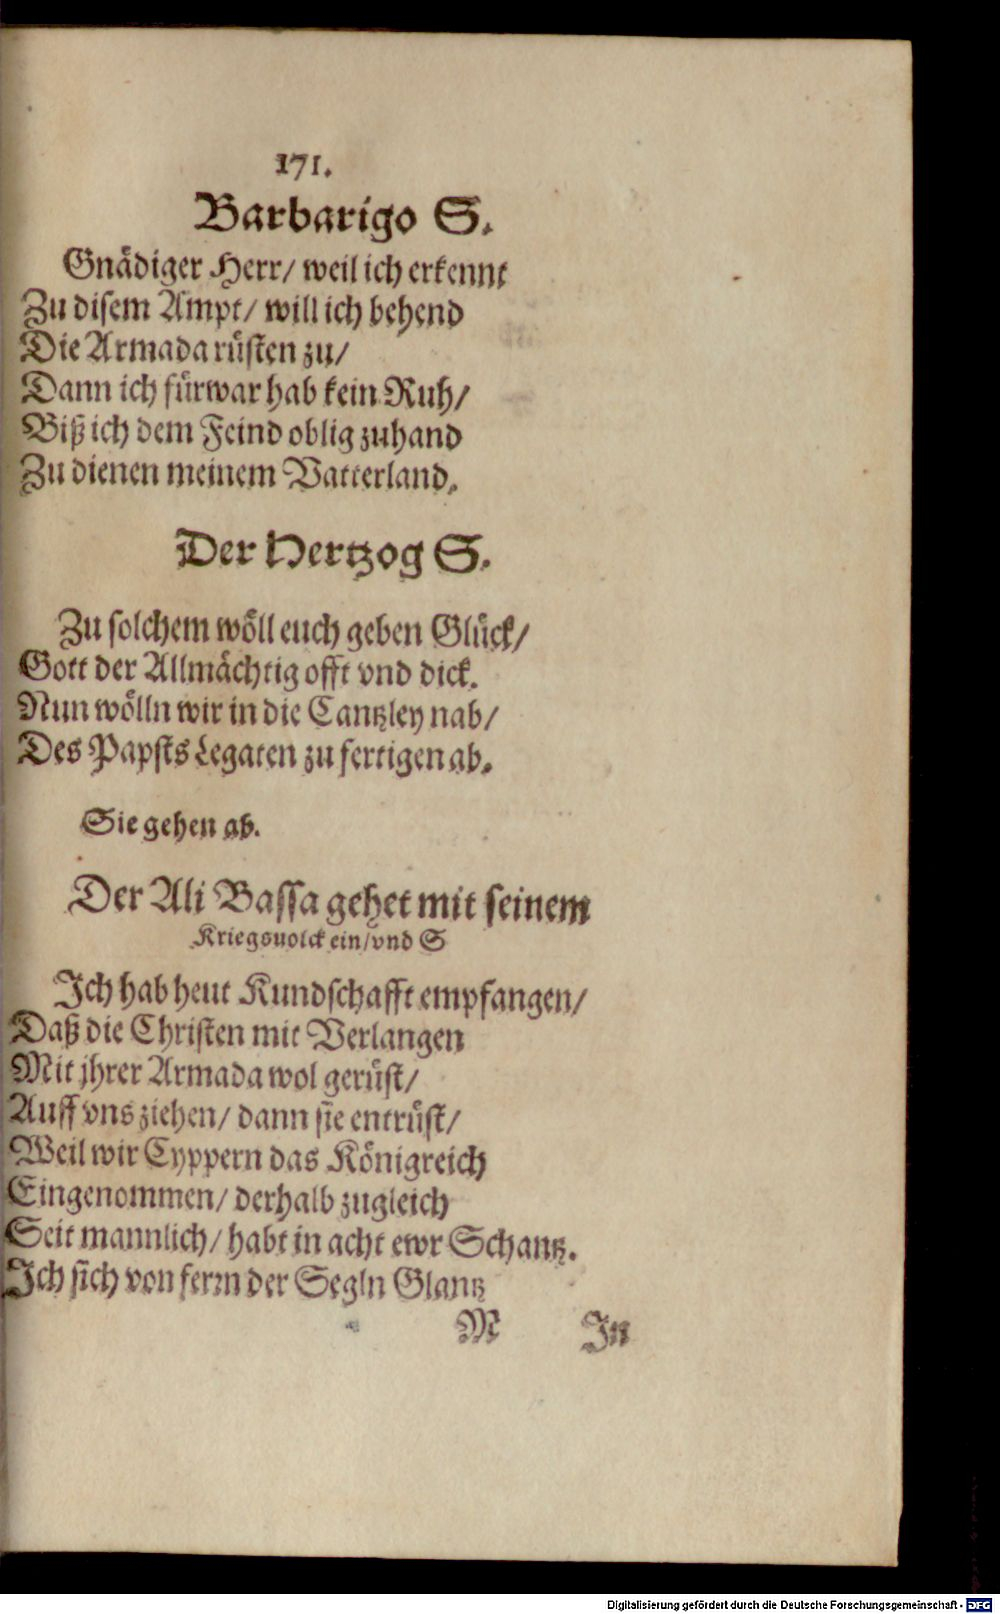 171.
Barbarigo S.
Gnädiger Herr/ weil ich erkennt
Zu disem Ampt/ will ich behend
Die Armada rüsten zu/
Dann ich fürwar hab kein Ruh/
Biß ich dem Feind oblig zuhand
Zu dienen meinem Vatterland.
Der Hertzog S.
Zu solchem wöll euch geben Glück/
Gott der Allmächtig offt vnd dick.
Nun wölln wir in die Cantzley nab/
Des Papsts Legaten zu fertigen ab.
Sie gehen ab.
Der Ali Bassa gehet mit seinem
Kriegsuolck ein/ vnd S
Ich hab heut Kundschafft empfangen/
Daß die Christen mit Verlangen
Mit jhrer Armada wol gerüst/
Auff vns ziehen/ dann sie entrüst/
Weil wir Cyppern das Königreich
Eingenommen/ derhalb zugleich
Seit mannlich/ habt in acht ewr Schantz.
Ich sich von ferrn der Segln Glantz
M In
Digitalisierung gefördert durch die Deutsche Forschungsgemeinschaft - DFG